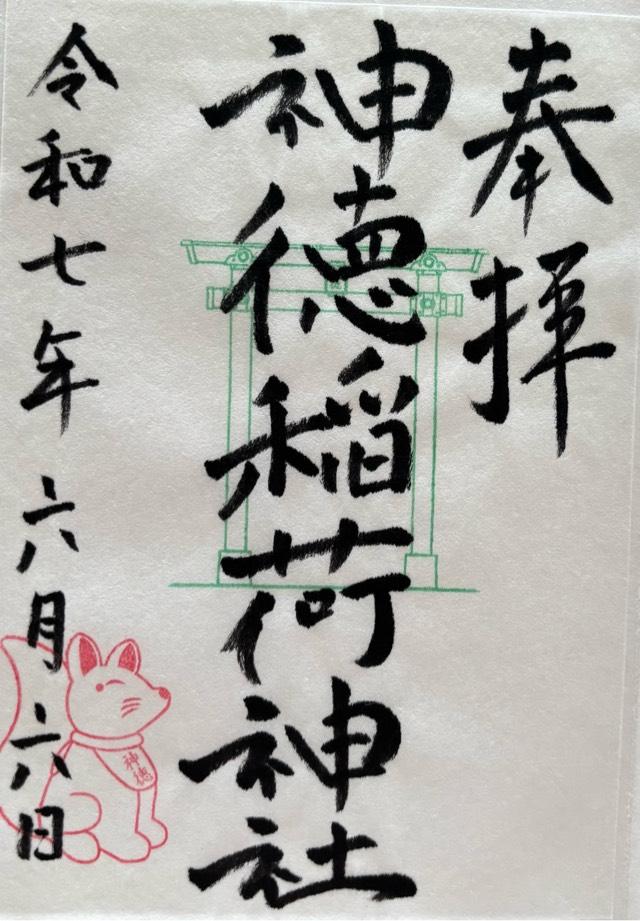 奉拝
神徳稲荷神社
令和七年六月六日
神徳